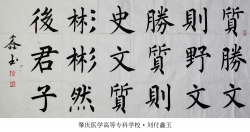 質勝文
則野文
勝質則
史文質
彬彬然
後君子
鑫玉
肇庆医学高等专科学校•刘付鑫玉